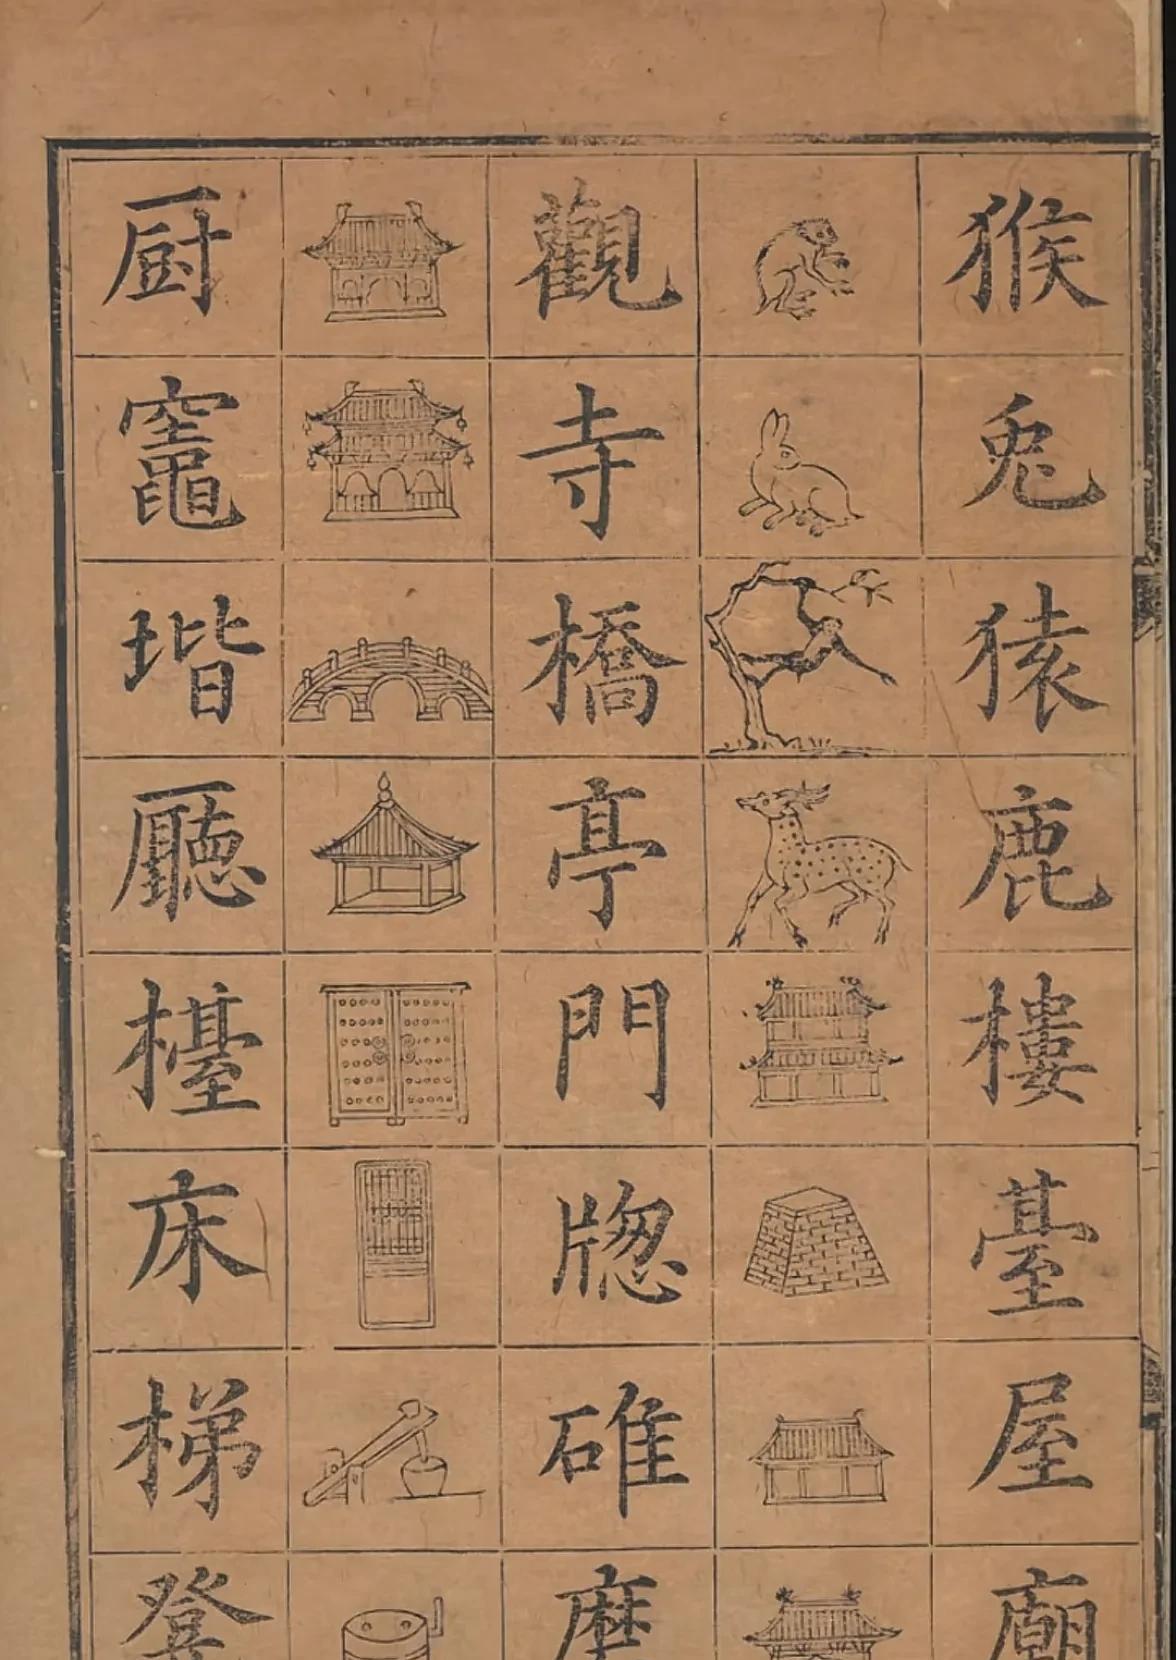 猴兔猿鹿樓臺屋廟
觀寺橋亭門牎碓磨
厨竈堦廳檯床梯